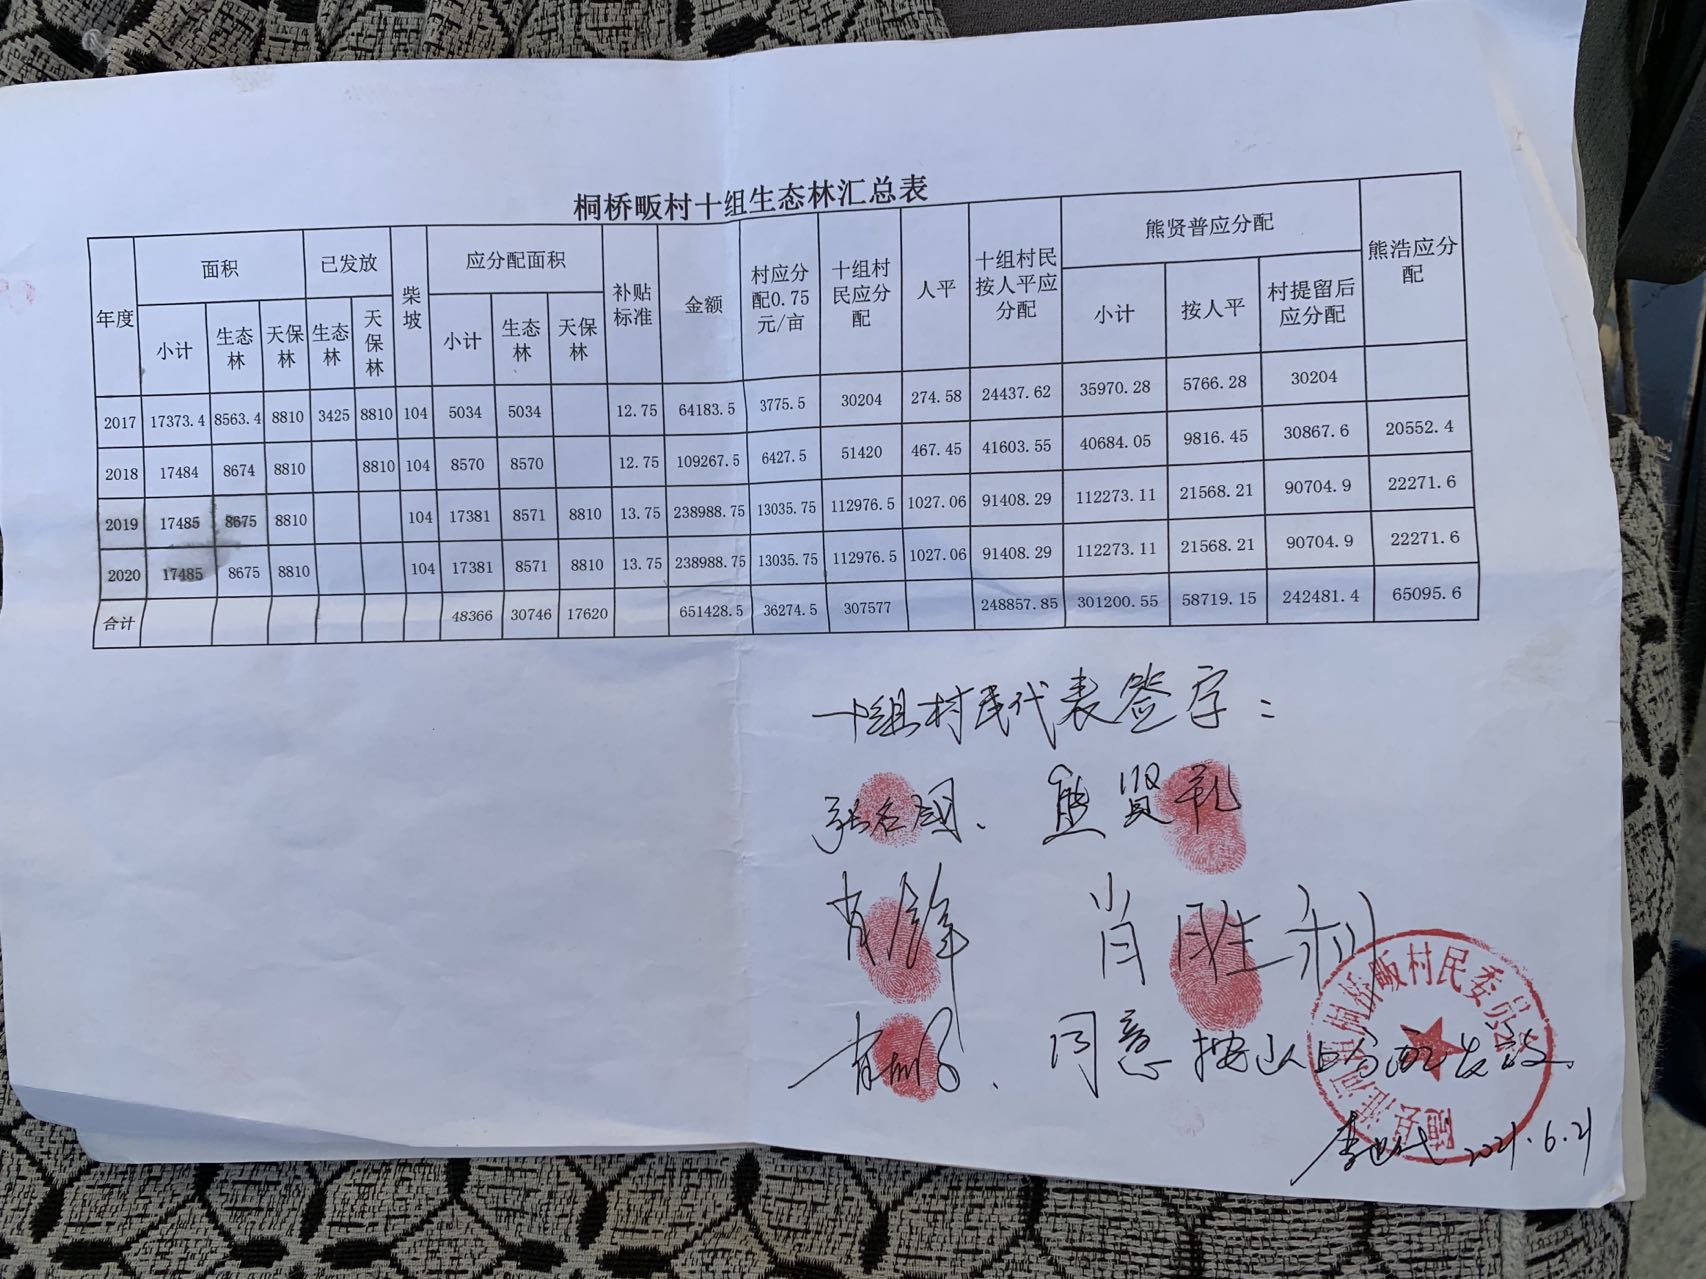 桐桥畈村十组生态林汇总表
年度 面积 已发放 柴坡 应分配面积 补贴标准 金额 村应分配0.75元/亩 十组村民应分配 人平 十组村民按人平应分配 熊贤普应分配 熊浩应分配
小计 生态林 天保林 生态林 天保林 小计 生态林 天保林 小计 按人平 村提留后应分配
2017 17373.4 8563.4 8810 3425 8810 104 5034 5034 12.75 64183.5 3775.5 30204 274.58 24437.62 35970.28 5766.28 30204
2018 17484 8674 8810 8810 104 8570 8570 12.75 109267.5 6427.5 51420 467.45 41603.55 40684.05 9816.45 30867.6 20552.4
2019 17485 8675 8810 104 17381 8571 8810 13.75 238988.75 13035.75 112976.5 1027.06 91408.29 112273.11 21568.21 90704.9 22271.6
2020 17485 8675 8810 104 17381 8571 8810 13.75 238988.75 13035.75 112976.5 1027.06 91408.29 112273.11 21568.21 90704.9 22271.6
合计 48366 30746 17620 651428.5 36274.5 307577 248857.85 301200.55 58719.15 242481.4 65095.6
十组村民代表签字：
张名国、熊贤礼
肖锋 肖胜利
肖 同意按以上分配发放
随县淮河镇桐桥畈村民委员会
李 2021.6.21